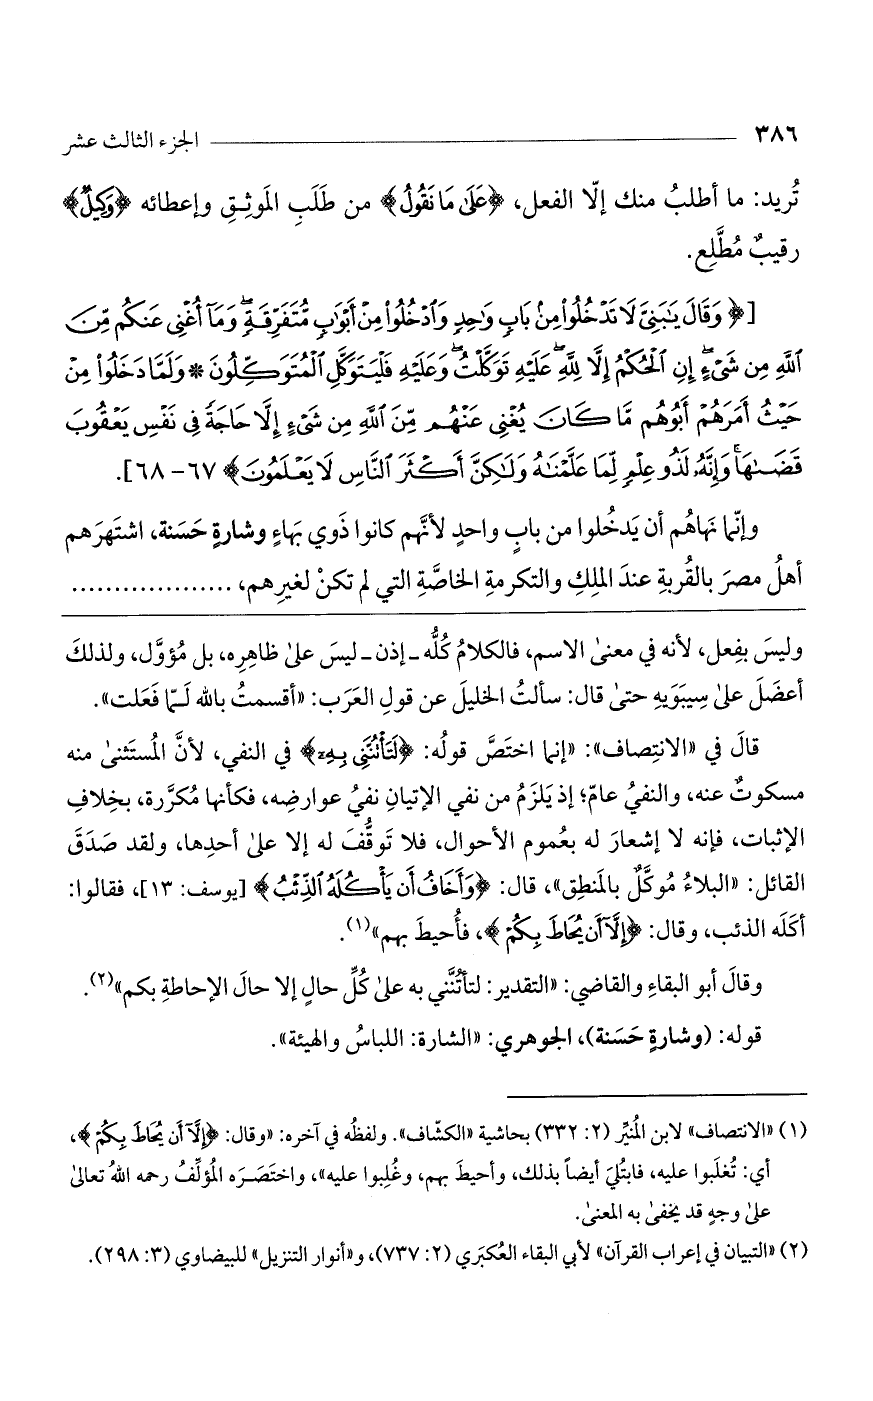 ٣٨٦ الجزء الثالث عشر
تُريد: ما أطلبُ منك إلّا الفعل، ﴿عَلَىٰ مَا نَقُولُ﴾ من طَلَبِ المَوثِقِ وإعطائه ﴿وَكِيلٌ﴾
رقيبٌ مُطَّلِع.
[﴿وَقَالَ يَٰبَنِىَّ لَا تَدْخُلُوا۟ مِنۢ بَابٍ وَٰحِدٍ وَٱدْخُلُوا۟ مِنْ أَبْوَٰبٍ مُّتَفَرِّقَةٍ ۖ وَمَآ أُغْنِى عَنكُم مِّنَ
ٱللَّهِ مِن شَىْءٍ ۖ إِنِ ٱلْحُكْمُ إِلَّا لِلَّهِ ۖ عَلَيْهِ تَوَكَّلْتُ ۖ وَعَلَيْهِ فَلْيَتَوَكَّلِ ٱلْمُتَوَكِّلُونَ * وَلَمَّا دَخَلُوا۟ مِنْ
حَيْثُ أَمَرَهُمْ أَبُوهُم مَّا كَانَ يُغْنِى عَنْهُم مِّنَ ٱللَّهِ مِن شَىْءٍ إِلَّا حَاجَةً فِى نَفْسِ يَعْقُوبَ
قَضَىٰهَا ۚ وَإِنَّهُۥ لَذُو عِلْمٍ لِّمَا عَلَّمْنَٰهُ وَلَٰكِنَّ أَكْثَرَ ٱلنَّاسِ لَا يَعْلَمُونَ﴾ ٦٧ - ٦٨].
وإنّما نهَاهُم أن يَدخُلوا من بابٍ واحدٍ لأنَّهم كانوا ذَوي بهَاءٍ وشارةٍ حَسَنة، اشتَهرَهم
أهلُ مصرَ بالقُربةِ عندَ الملِكِ والتكرمةِ الخاصَّةِ التي لم تكنْ لغيرِهم، ...................
وليسَ بفِعل، لأنه في معنىٰ الاسم، فالكلامُ كُلُّه ـ إذن ـ ليسَ علىٰ ظاهِرِه، بل مُؤوَّل، ولذلكَ
أعضَلَ علىٰ سِيبَوَيهِ حتىٰ قال: سألتُ الخليلَ عن قولِ العَرَب: «أقسمتُ بالله لَـمّا فَعَلت».
قالَ في «الانتِصاف»: «إنما اختَصَّ قولُه: ﴿لَتَأْتُنَّنِى بِهِۦٓ﴾ في النفي، لأنَّ المُستَثنىٰ منه
مسكوتٌ عنه، والنفيُ عامّ؛ إذ يَلزَمُ من نفي الإتيانِ نفيُ عوارضِه، فكأنها مُكرَّرة، بخِلافِ
الإثبات، فإنه لا إشعارَ له بعُموم الأحوال، فلا تَوقُّفَ له إلا علىٰ أحدِها، ولقد صَدَقَ
القائل: «البلاءُ مُوكَّلٌ بالمَنطِق»، قال: ﴿وَأَخَافُ أَن يَأْكُلَهُ ٱلذِّئْبُ﴾ [يوسف: ١٣]، فقالوا:
أكلَه الذئب، وقال: ﴿إِلَّآ أَن يُحَاطَ بِكُمْ﴾، فأُحيطَ بهم»(١).
وقالَ أبو البقاءِ والقاضي: «التقدير: لتأتُنَّني به علىٰ كُلِّ حالٍ إلا حالَ الإحاطةِ بكم»(٢).
قوله: (وشارةٍ حَسَنة)، الجوهري: «الشارة: اللباسُ والهيئة».
(١) «الانتصاف» لابن المُنيِّر (٢: ٣٣٢) بحاشية «الكشّاف». ولفظُه في آخره: «وقال: ﴿إِلَّآ أَن يُحَاطَ بِكُمْ﴾،
أي: تُغلَبوا عليه، فابتُليَ أيضاً بذلك، وأحيطَ بهم، وغُلِبوا عليه»، واختَصَرَه المُؤلِّفُ رحمه اللهُ تعالىٰ
علىٰ وجهٍ قد يخفىٰ به المعنىٰ.
(٢) «التبيان في إعراب القرآن» لأبي البقاء العُكبَري (٢: ٧٣٧)، و«أنوار التنزيل» للبيضاوي (٣: ٢٩٨).